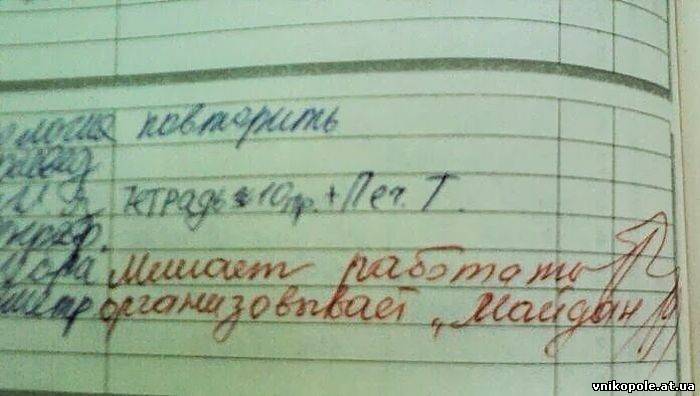 повторить
тетрадь 10 пр. + Печ. Т.
Мешает работать
организовывает "Майдан"
vnikopole.at.ua